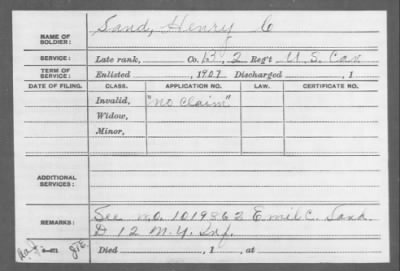 NAME OF SOLDIER: Sand, Henry C
SERVICE: Late rank, Co. B, 2 Reg't U.S. Cav
TERM OF SERVICE: Enlisted , 1907 Discharged , 1
DATE OF FILING. CLASS. APPLICATION NO. LAW. CERTIFICATE NO.
Invalid, "no claim"
Widow,
Minor,
ADDITIONAL SERVICES:
REMARKS: See m.o. 1019862 Emil C. Sand
D 12 M.Y. Inf.
Died , 1 , at